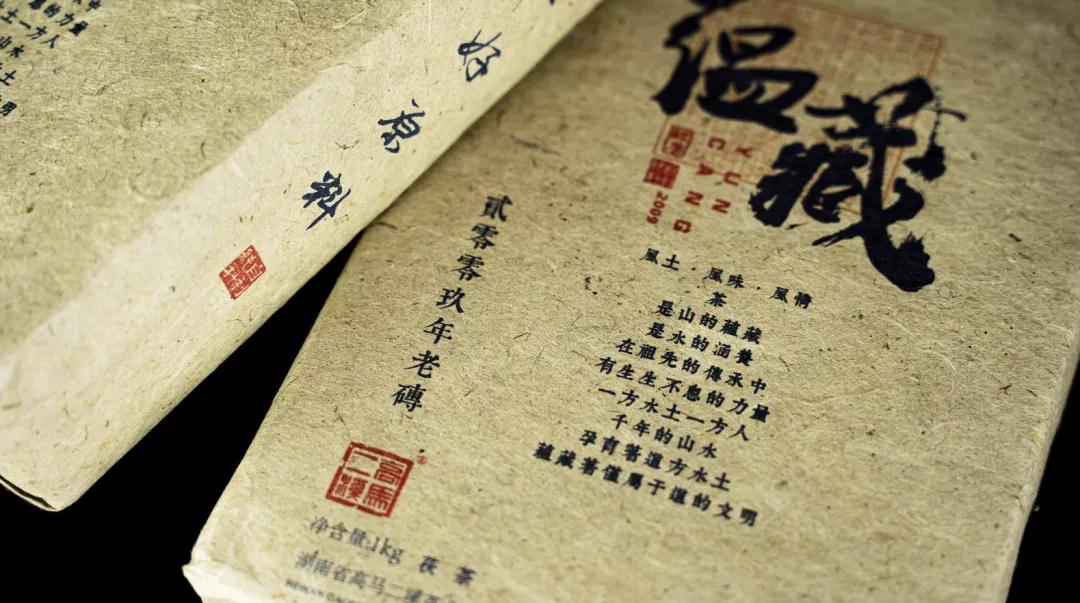 好原料
中
的力量
一方人
山水
土
明
温藏
YUN
CANG
2009
贰零零玖年老磚
風土·風味·風情
茶
是山的蘊藏
是水的涵養
在祖先的傳承中
有生生不息的力量
一方水土一方人
千年的山水
孕育著這方水土
蘊藏著僅屬于這的文明
高馬二溪
净含量:1kg 茯茶
湖南省高马二溪茶